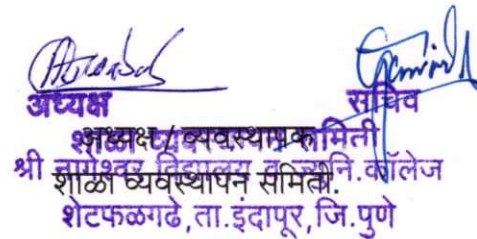 अध्यक्ष
सचिव
अध्यक्ष / व्यवस्थापक
समिती
श्री नागेश्वर विद्यालय व ज्युनि.कॉलेज
शाळा व्यवस्थापन समिती.
शेटफळगढे,ता.इंदापूर,जि.पुणे